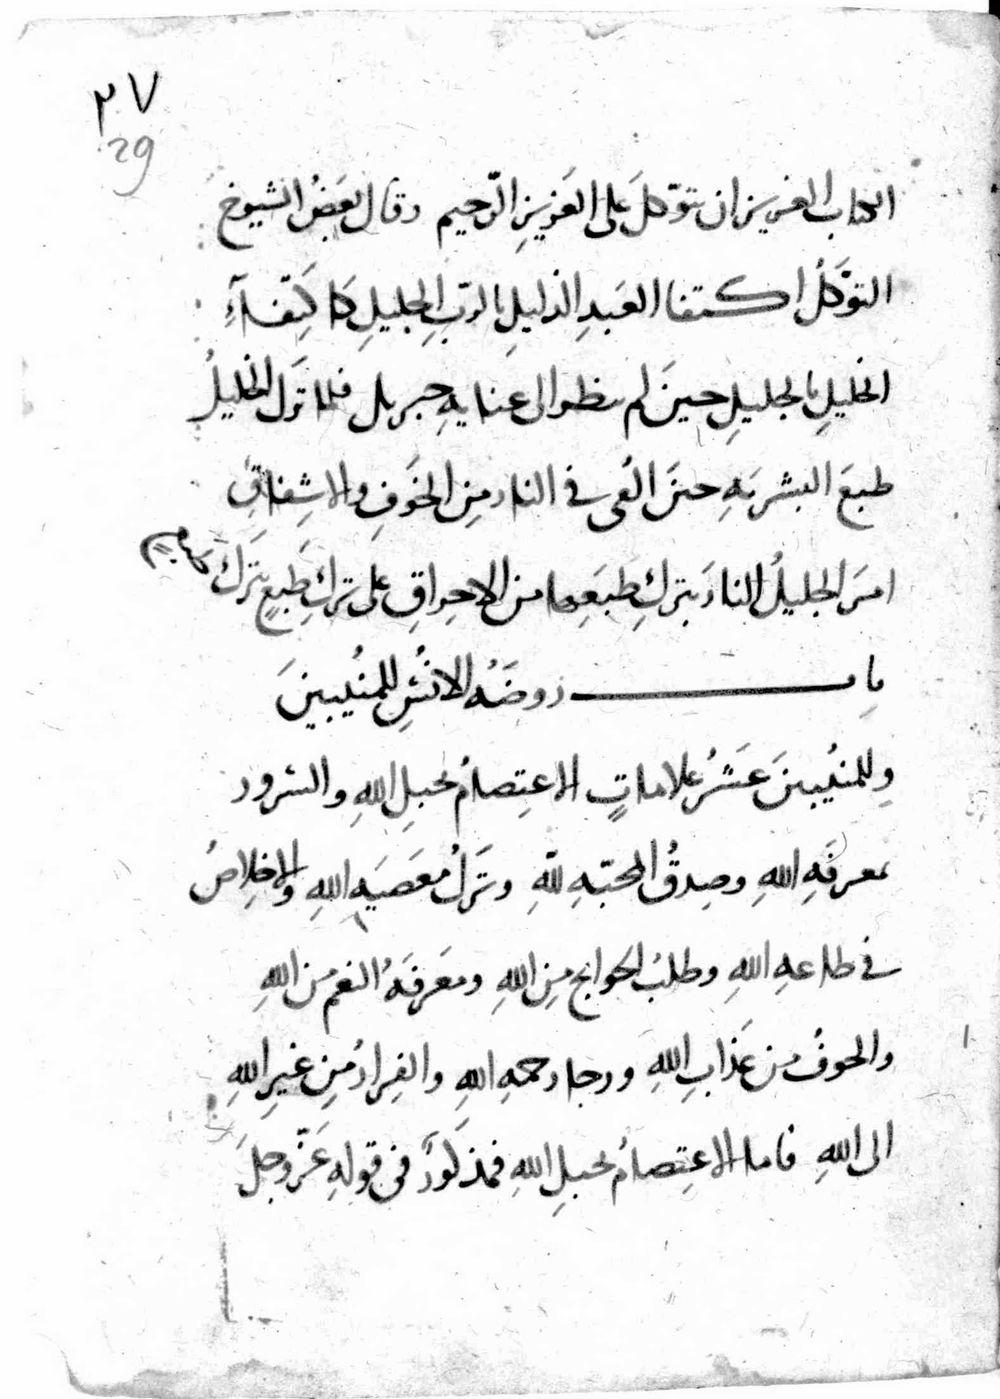 ٢٧
29
الكتاب العزيز ان تتوّكلَ على العَزيزِ الرّحيم وقال بَعضُ الشيوخ
التوّكلُ اكتفا العَبدِ الذليلِ بالرّبِ الجليلِ كاكِتفآءِ
الخليلِ بالجليلِ حينَ لم ينظر الى عنايةِ جبريل فلما تَركَ الخليلُ
طبعَ البشريَهِ حينَ القى في النار مِن الخَوفِ والاشِفاقِ
امَرَ الجليلُ النارَ بتركِ طَبعَها من الاحِراقِ على تركِ طَبعٍ بتَركَ
باب روضَهُ الانُسِ للمنُيبينَ
وللمنُيبينَ عَشرُ علاماتٍ الاعِتصامُ بحبلِ اللهِ والسُرور
بمعرفَهِ اللهِ وصِدقُ المحبّهِ للهِ وتَركُ معَصيَهِ اللهِ والاخِلاصُ
في طاعهِ اللهِ وطلبُ الحوايج مِنِ اللهِ ومعَرفَهُ النعم من اللهِ
والخوفُ من عَذابِ اللهِ ورجا رحمهِ اللهِ والفِرارُ مِن غيرِ اللهِ
الى اللهِ فاما الاعِتصامُ بحبلِ اللهِ فمذكورٌ في قولهِ عَزّ وجلَ